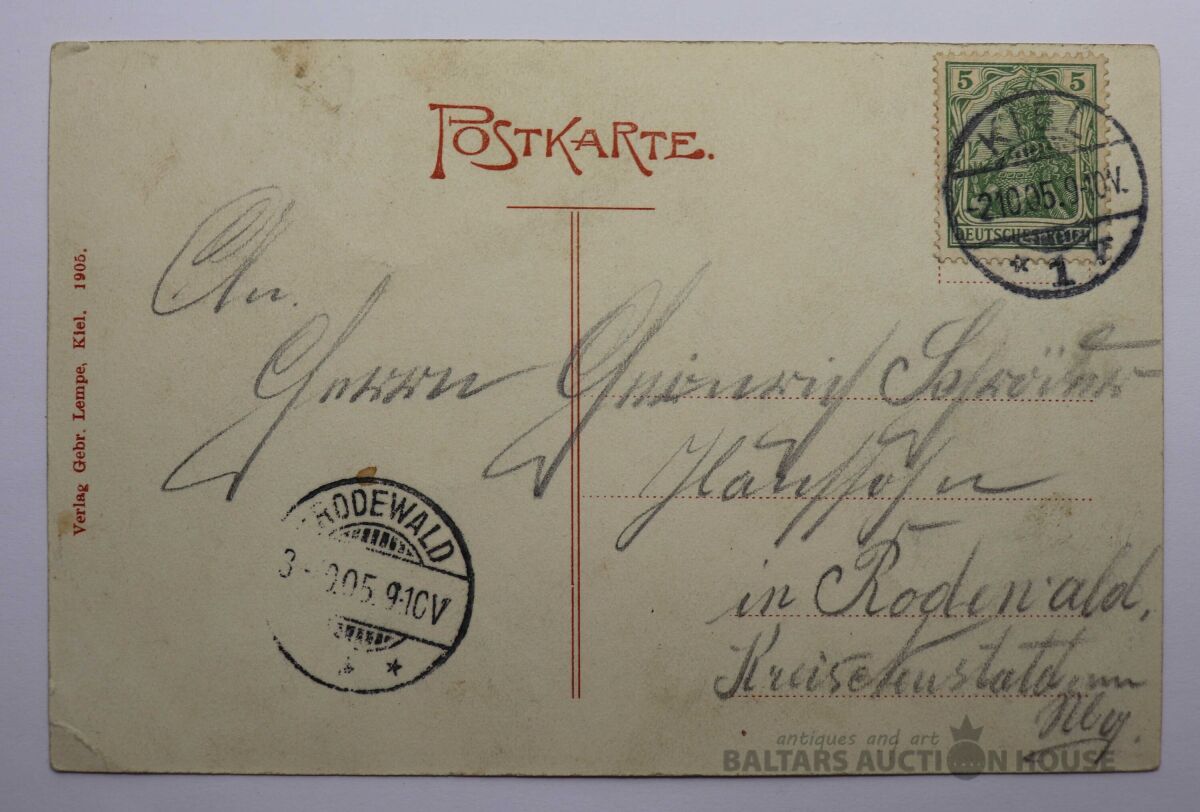 POSTKARTE.
5 5
DEUTSCHES REICH
KIEL
-2.10.05.9-10V.
* 1 F
Verlag Gebr. Lempe, Kiel. 1905.
An.
Herrn Heinrich Schröder
in Rodewald,
RODEWALD
3 - 0.05.9-10V
* *
antiques and art
BALTARS AUCTION HOUSE